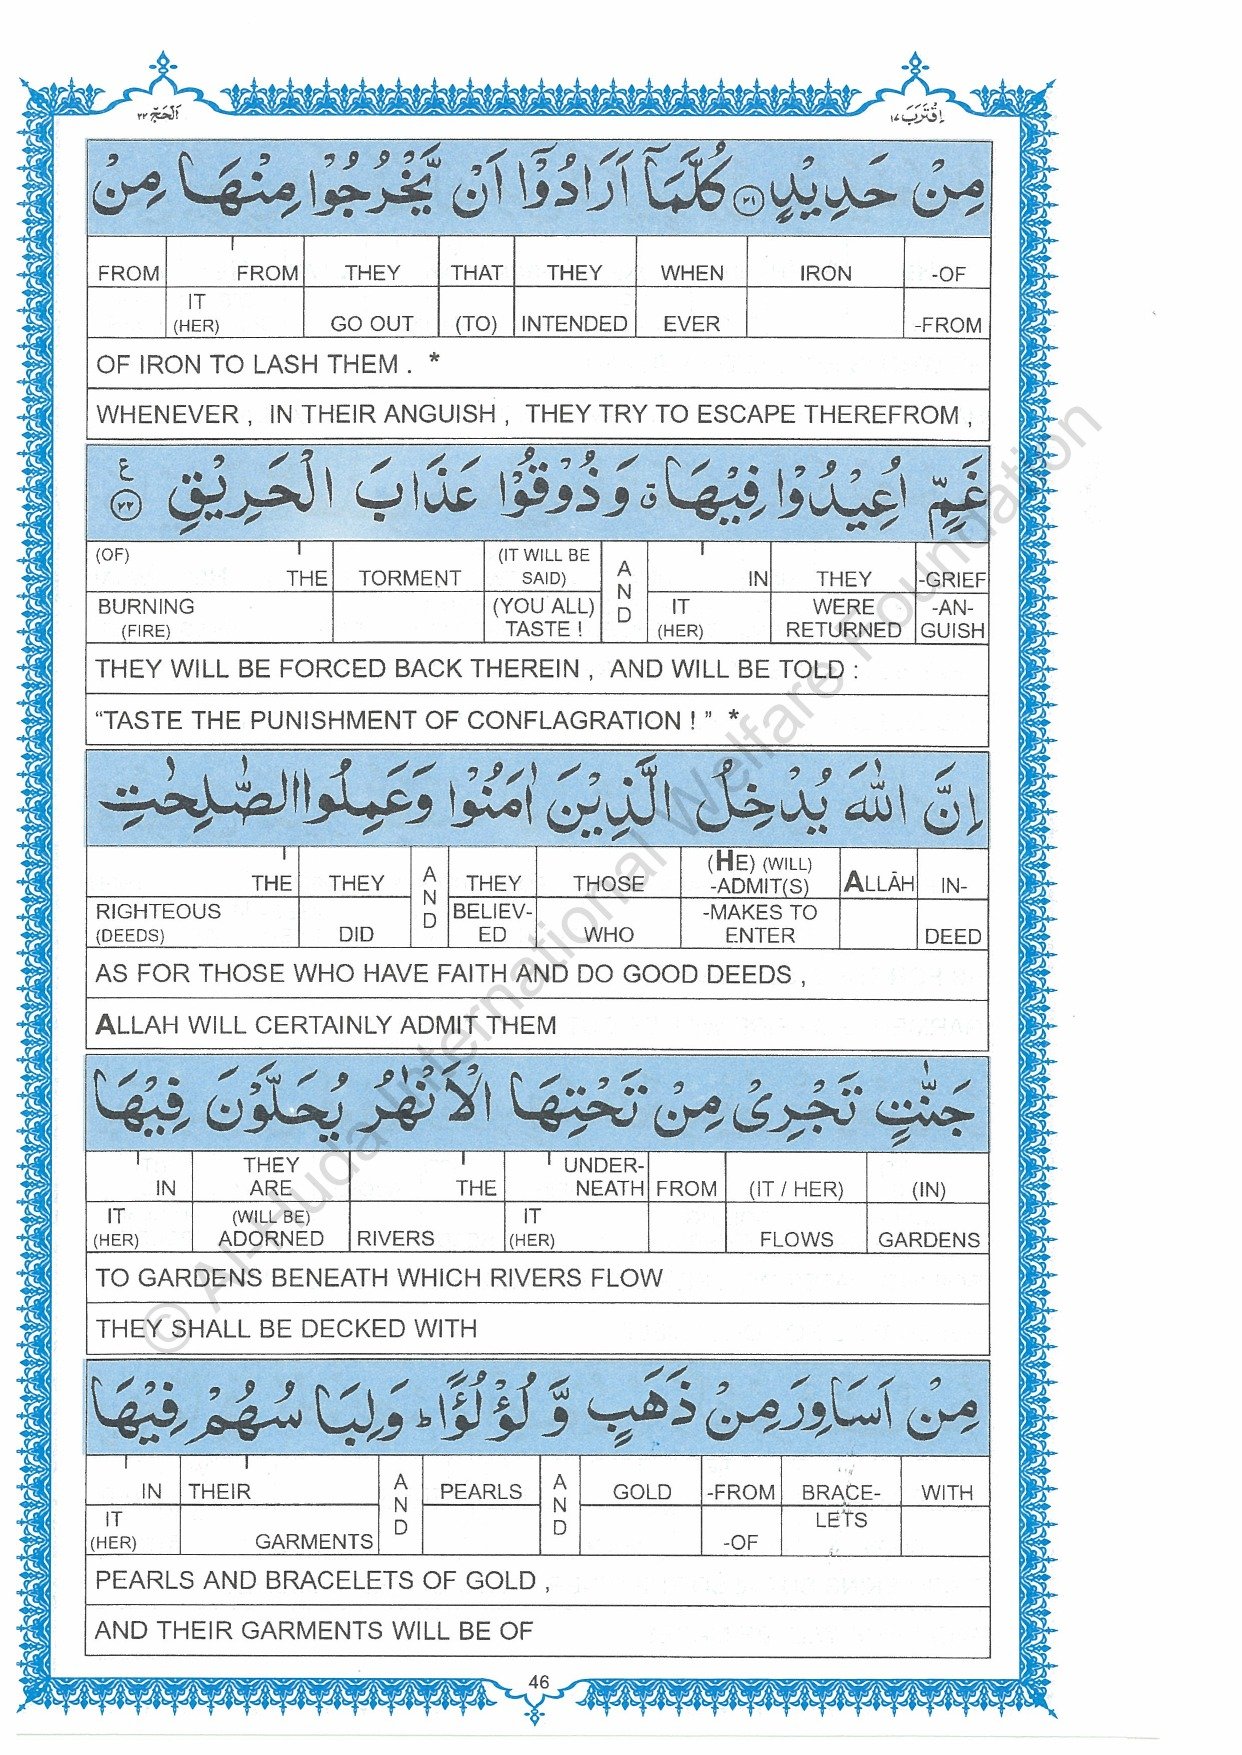 اَلْحَجّ ٢٢
اِقْتَرَبَ ١٧
مِنْ حَدِيْدٍ ۝٢١ كُلَّمَاۤ اَرَادُوْۤا اَنْ يَّخْرُجُوْا مِنْهَا مِنْ
FROM FROM THEY THAT THEY WHEN IRON -OF
IT (HER) GO OUT (TO) INTENDED EVER -FROM
OF IRON TO LASH THEM . *
WHENEVER , IN THEIR ANGUISH , THEY TRY TO ESCAPE THEREFROM ,
غَمٍّ اُعِيْدُوْا فِيْهَا ۃ وَذُوْقُوْا عَذَابَ الْحَرِيْقِ ۝٢٢ ع
(OF) THE TORMENT (IT WILL BE SAID) AND IN THEY -GRIEF
BURNING (FIRE) (YOU ALL) TASTE ! IT (HER) WERE RETURNED -AN-GUISH
THEY WILL BE FORCED BACK THEREIN , AND WILL BE TOLD :
“TASTE THE PUNISHMENT OF CONFLAGRATION ! ” *
اِنَّ اللّٰهَ يُدْخِلُ الَّذِيْنَ اٰمَنُوْا وَعَمِلُوا الصّٰلِحٰتِ
THE THEY AND THEY THOSE (HE) (WILL) -ADMIT(S) ALLĀH IN-
RIGHTEOUS (DEEDS) DID BELIEV-ED WHO -MAKES TO ENTER DEED
AS FOR THOSE WHO HAVE FAITH AND DO GOOD DEEDS ,
ALLAH WILL CERTAINLY ADMIT THEM
جَنّٰتٍ تَجْرِيْ مِنْ تَحْتِهَا الْاَنْهٰرُ يُحَلَّوْنَ فِيْهَا
IN THEY ARE THE UNDER-NEATH FROM (IT / HER) (IN)
IT (HER) (WILL BE) ADORNED RIVERS IT (HER) FLOWS GARDENS
TO GARDENS BENEATH WHICH RIVERS FLOW
THEY SHALL BE DECKED WITH
مِنْ اَسَاوِرَ مِنْ ذَهَبٍ وَّ لُؤْلُؤًا ؕ وَلِبَاسُهُمْ فِيْهَا
IN THEIR AND PEARLS AND GOLD -FROM BRACE- WITH
IT (HER) GARMENTS -OF LETS
PEARLS AND BRACELETS OF GOLD ,
AND THEIR GARMENTS WILL BE OF
46
© Al-Huda International Welfare Foundation